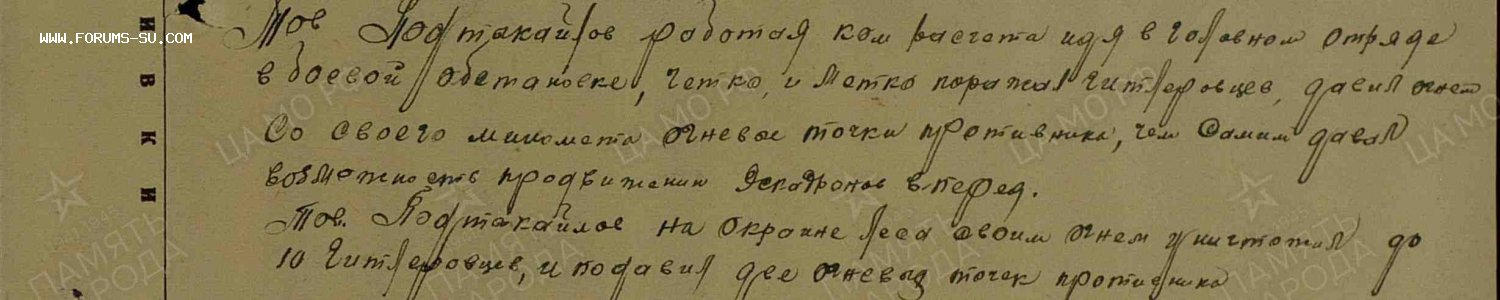 WWW.FORUMS-SU.COM
И В К И
Тов Подтакайлов работая ком расчета идя в головном отряде
в боевой обстановке, четко, и метко поражал гитлеровцев, давил огнем
со своего миномета огневые точки противника, чем самим давал
возможность продвижении Эскадронов вперед.
Тов. Подтакайлов на окраине леса своим огнем уничтожил до
10 Гитлеровцев, и подавил две огневых точек противника
ЦАМО РФ
ПАМЯТЬ
НАРОДА